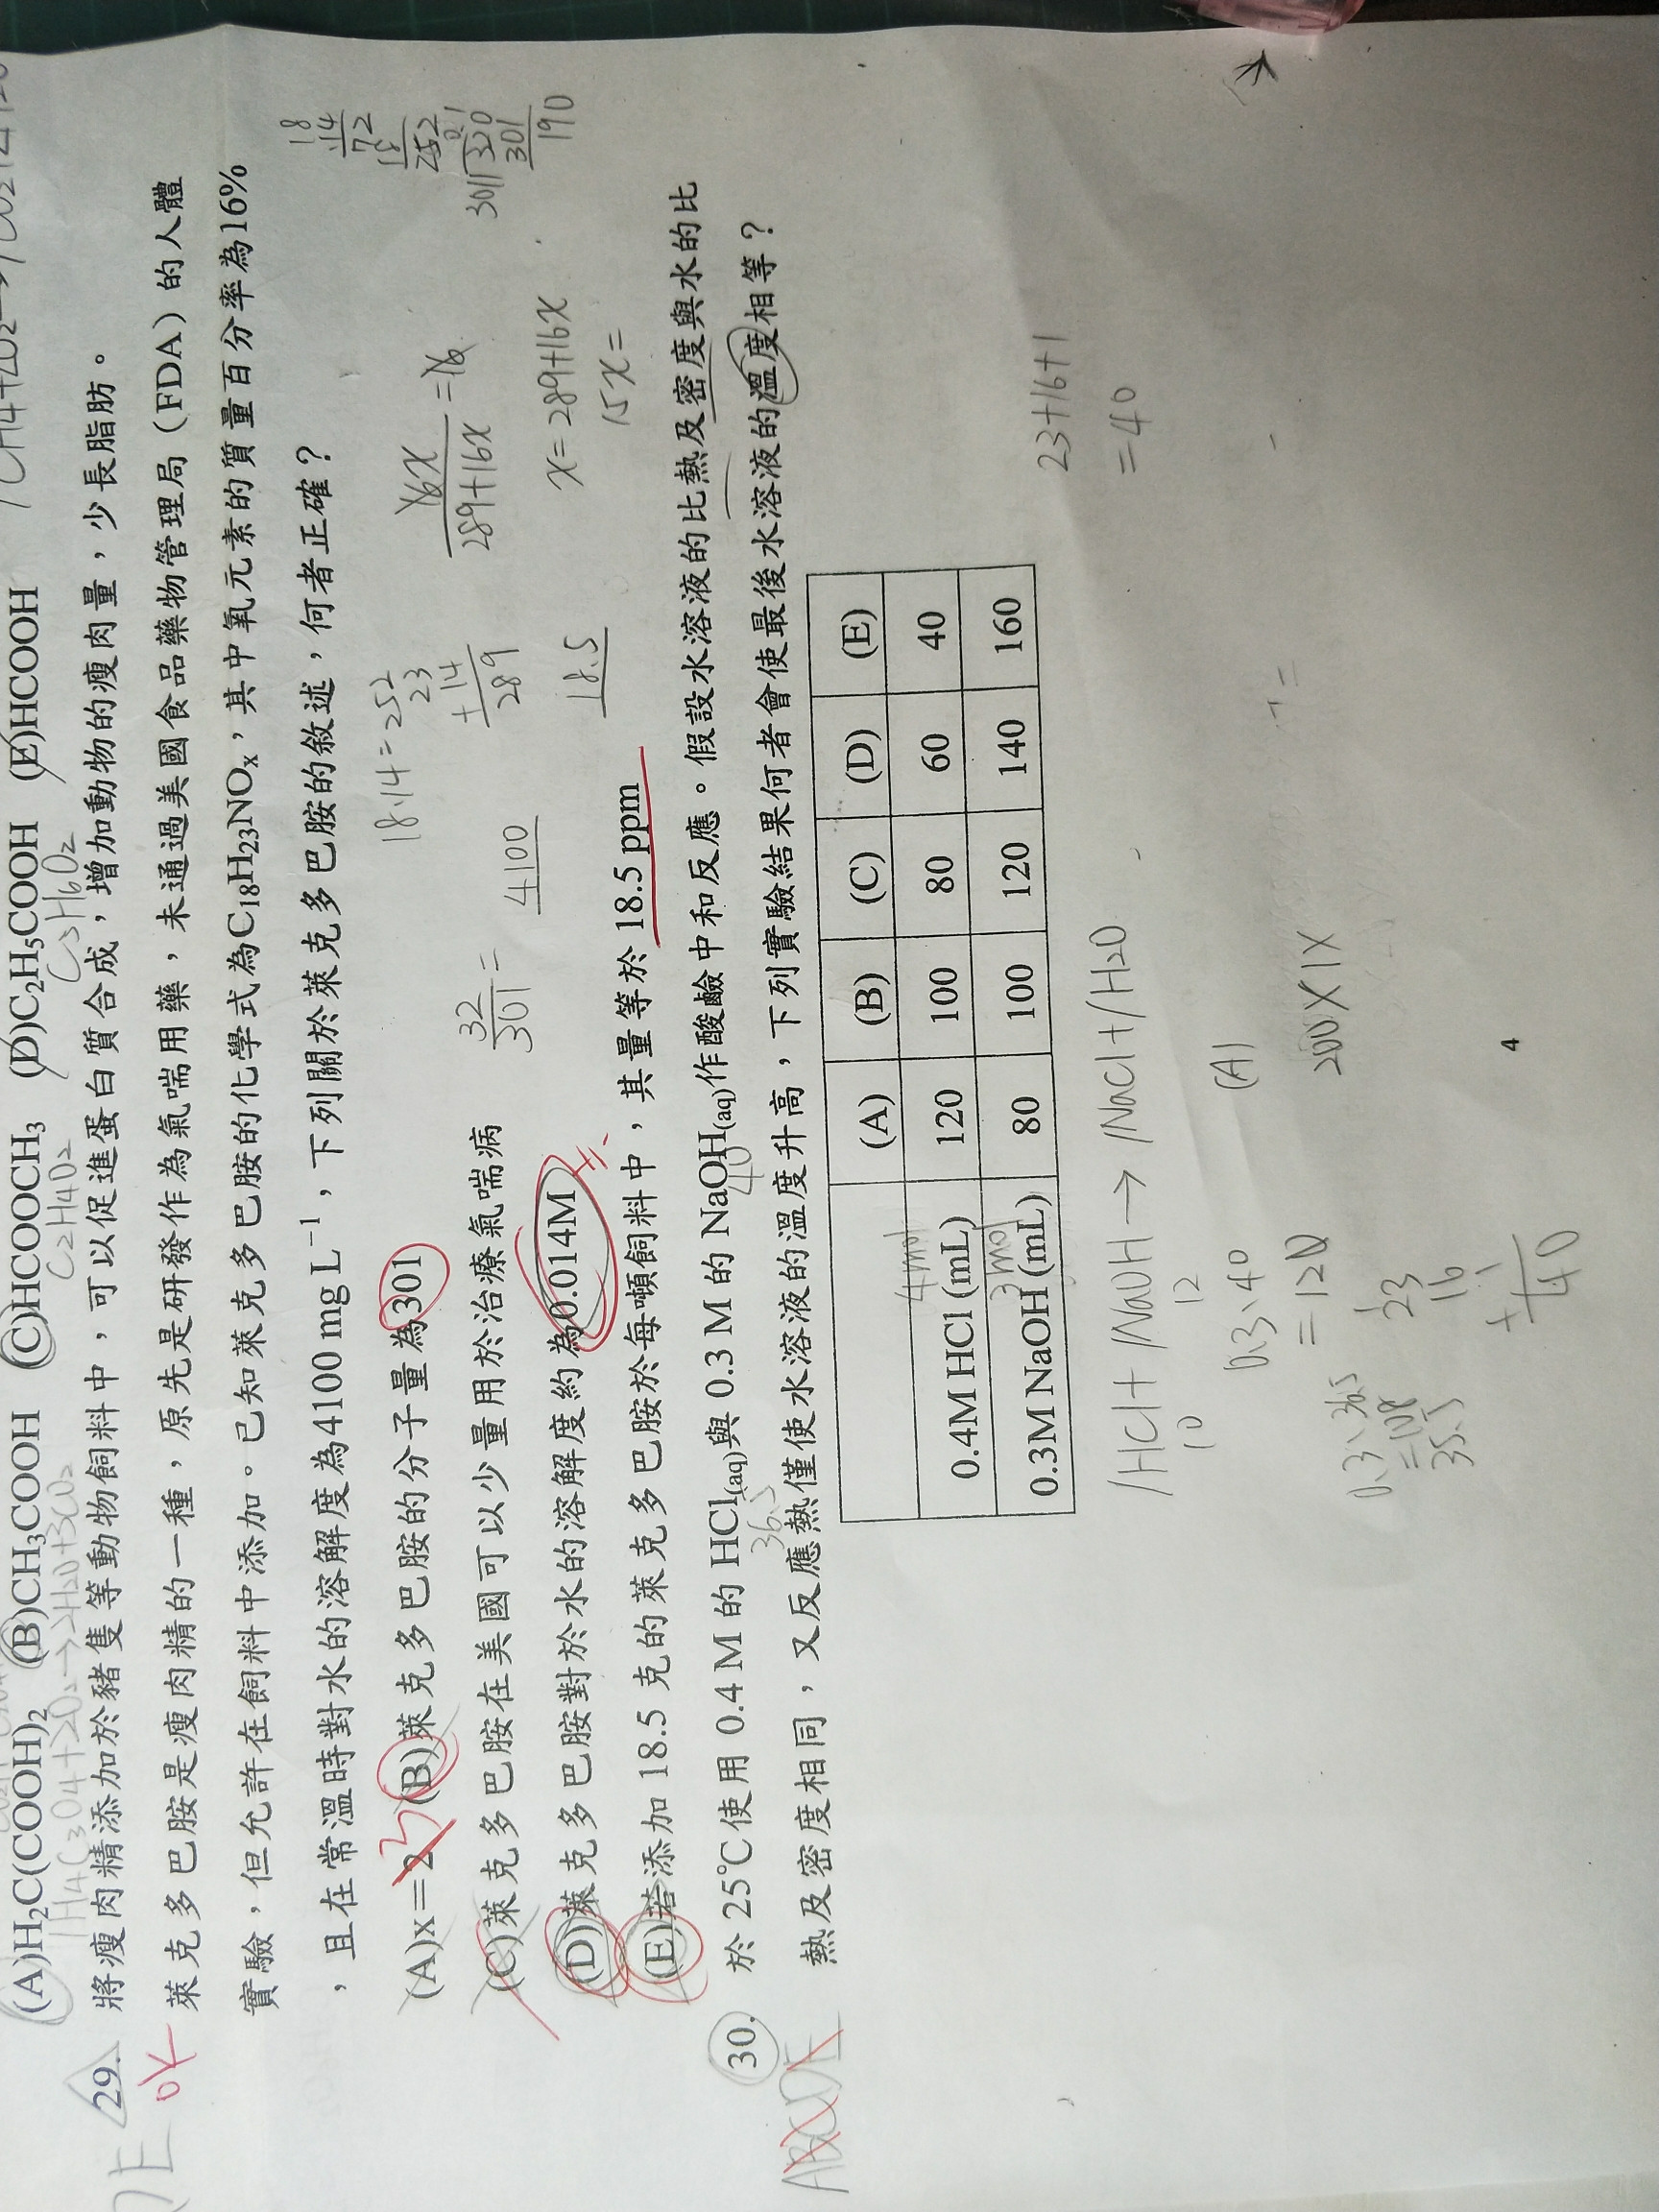 (A)H₂C(COOH)₂ (B)CH₃COOH (C)HCOOCH₃ (D)C₂H₅COOH (E)HCOOH
C2H4O2 C3H6O2
29. 將瘦肉精添加於豬隻等動物飼料中，可以促進蛋白質合成，增加動物的瘦肉量，少長脂肪。
OK
萊克多巴胺是瘦肉精的一種，原先是研發作為氣喘用藥，未通過美國食品藥物管理局（FDA）的人體
實驗，但允許在飼料中添加。已知萊克多巴胺的化學式為C₁₈H₂₃NOₓ，其中氧元素的質量百分率為16%
，且在常溫時對水的溶解度為4100 mg L⁻¹，下列關於萊克多巴胺的敘述，何者正確？
(A)x＝2 (B)萊克多巴胺的分子量為301
(C)萊克多巴胺在美國可以少量用於治療氣喘病
(D)萊克多巴胺對於水的溶解度約為0.014M
(E)若添加18.5克的萊克多巴胺於每噸飼料中，其量等於18.5 ppm
18
14
72
18
252
18.14=252
23
+ 14
289
16x
289+16x
=16
x=289+16x
15x=
32
301
=
4100
18.5
301
320
301
190
30. 於25℃使用0.4 M的HCl₍aq₎與0.3 M的NaOH₍aq₎作酸鹼中和反應。假設水溶液的比熱及密度與水的比
36.5 40
ABCDE
熱及密度相同，又反應熱僅使水溶液的溫度升高，下列實驗結果何者會使最後水溶液的溫度相等？
(A) (B) (C) (D) (E)
4mol
0.4M HCl (mL) 120 100 80 60 40
3mol
0.3M NaOH (mL) 80 100 120 140 160
23+16+1
=40
1HCl+1NaOH→1NaCl+1H2O
10 12
0.3.40
=120
(A)
200×1×
0.3.36.5
=108
35.5
23
16
+ 1
40
4